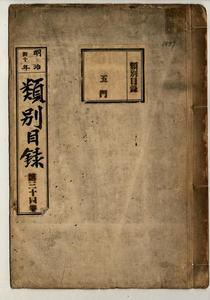 類別目録
五門
明治
四十年
類別目録
第三十四巻